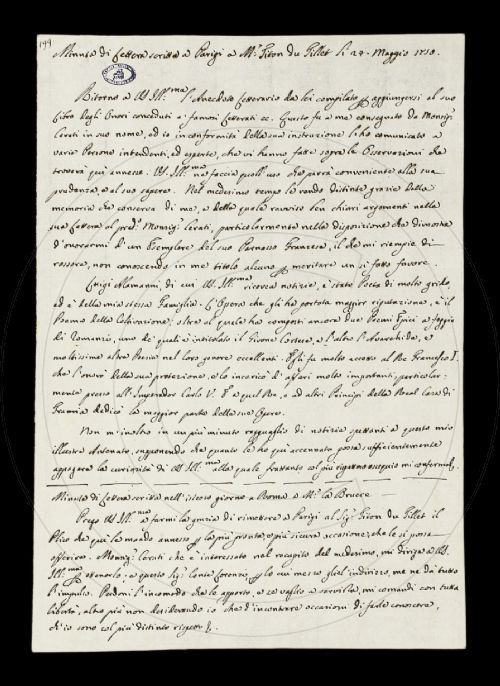 199
Minuta di Lettera scritta a Parigi a Mr. Titon du Tillet li 27. Maggio 1750.
Ritorno a VS Ill.ma l'Anecdoto Letterario da Lei compilato per aggiungersi al suo
Libro degli Onori conceduti a' famosi Letterati ec. Questo fu a me consegnato da Monsig.
Cerati in suo nome, ed io in conformità della sua instruzione l'ho comunicato a
varie Persone intendenti, ed esperte, che vi hanno fatte sopra le Osservazioni che
troverà qui annesse. VS Ill.ma ne faccia quell'uso che parrà conveniente alla sua
prudenza, e al suo sapere. Nel medesimo tempo le rendo distinte grazie della
memoria che conserva di me, e della quale ravviso ben chiari argomenti nella
sua Lettera al pred.o Monsig.r Cerati, particolarmente nella disposizione che dimostra
d'onorarmi di un Esemplare del suo Parnasso Franzese, il che mi riempie di
rossore, non conoscendo in me titolo alcuno per meritare un sì fatto favore.
Luigi Alamanni, di cui VS Ill.ma ricerca notizie, è stato Poeta di molto grido,
ed è della mia stessa Famiglia. L'Opera che gli ha portata maggior riputazione, è il
Poema della Coltivazione; oltre al quale ha composti ancora due Poemi Epici a foggia
di Romanzo, uno de' quali è intitolato il Girone Cortese, e l'altro l'Avarchide, e
moltissime altre Poesie nel loro genere eccellenti. Egli fu molto accetto al Re Francesco I.
che l'onorò della sua protezione, e lo incaricò d'affari molto importanti, particolar-
mente presso all'Imperador Carlo V. E a quel Re, e ad altri Principi della Real Casa di
Francia dedicò la maggior parte delle sue Opere.
Non m'inoltro in un più minuto ragguaglio di notizie spettanti a questo mio
illustre Antenato, supponendo che quanto le ho più accennato possa sufficientemente
appagare la curiosità di VS Ill.ma alla quale frattanto col più rispettoso ossequio mi confermo.
Minuta di Lettera scritta nell'istesso giorno a Roma a Mr. la Bruere
Prego VS Ill.ma a farmi la grazia di rimettere a Parigi al Sig.r Titon du Tillet il
Plico che qui le mando annesso per la più pronta, e più sicura occasione, che le si possa
offerire. Monsig.r Cerati che è interessato nel recapito del medesimo, mi dirige a VS
Ill.ma per ottenerlo, e questo Sig.r Conte Lorenzi, per lo cui mezzo gliel'indirizzo, me ne dà tutto
l'impulso. Perdoni l'incomodo che le apporto, e se vaglio a servirla, mi comandi con tutta
libertà, altro più non desiderando io che d'incontrare occasioni di farle conoscere,
ch'io sono col più distinto rispetto